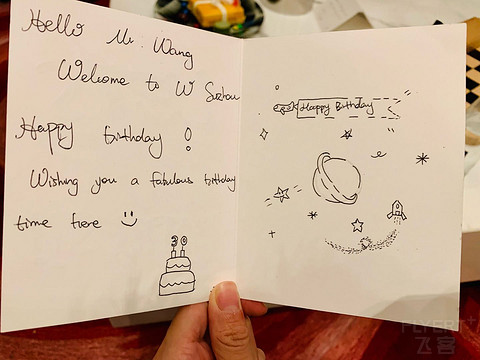 Hello Mr. Wang
Welcome to W Suzhou
Happy birthday !
Wishing you a fabulous birthday
time here :)
30
Happy Birthday
FLYERT
飞客